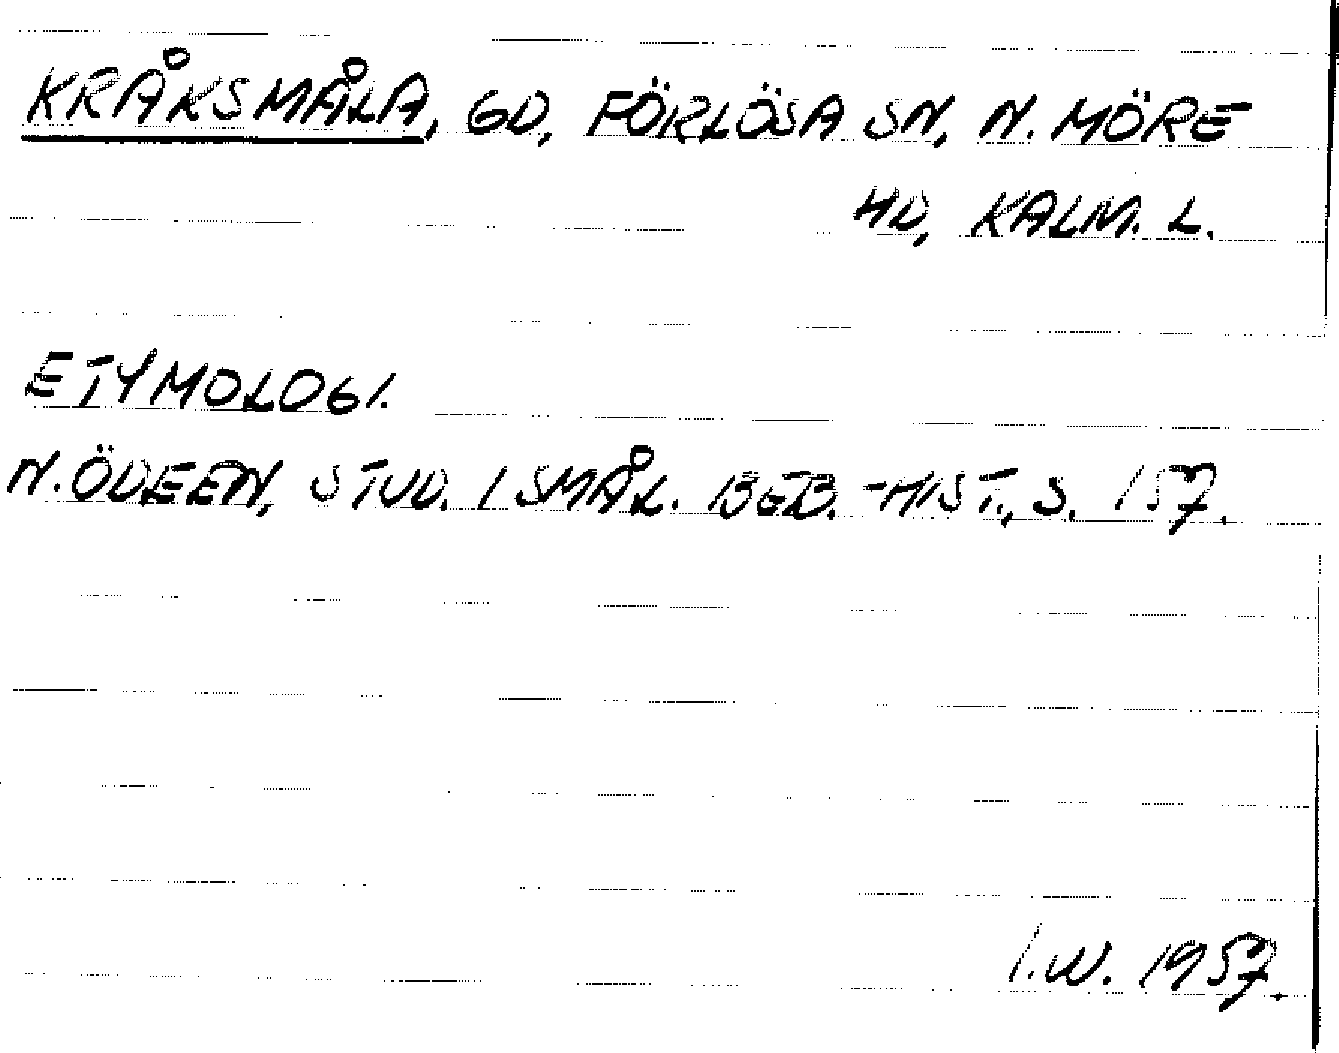 KRÅKSMÅLA, GD, FÖRLÖSA SN, N. MÖRE
HD, KALM. L.
ETYMOLOGI.
N. ÖDEEN, STUD. I SMÅL. BEB.-HIST., S. 157.
I.W. 1957.